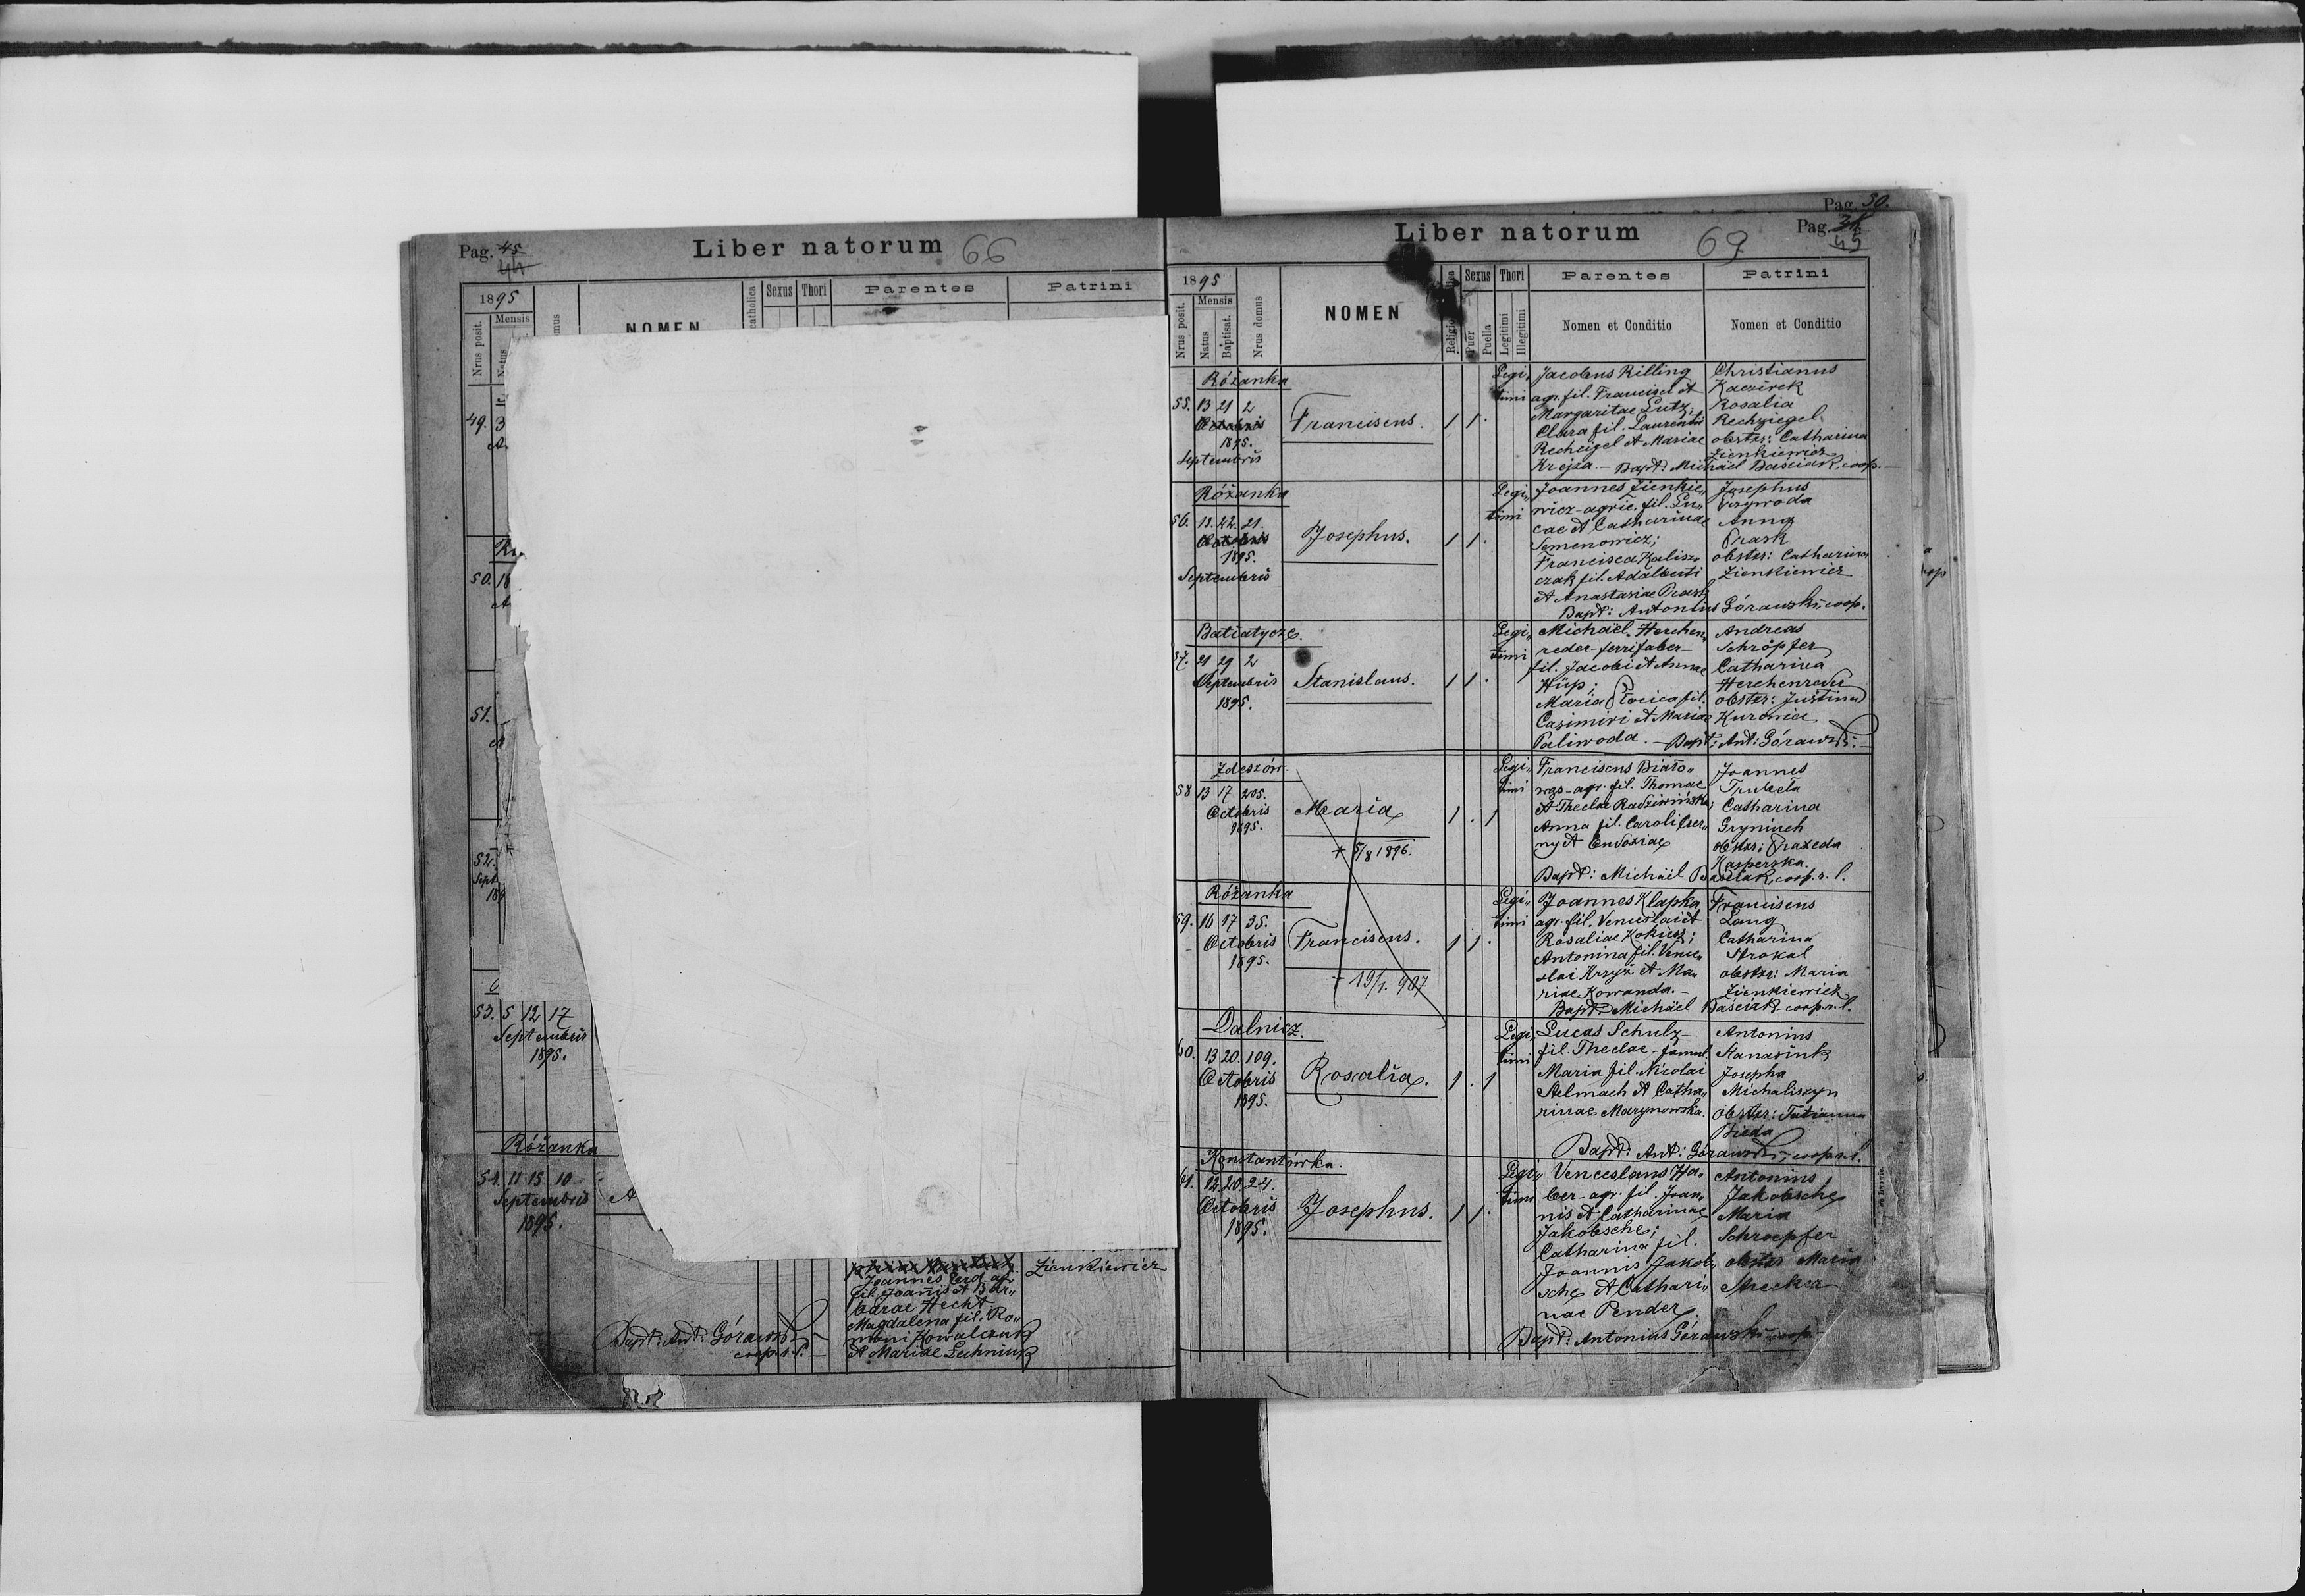 Pag. 45
44
Liber natorum 66
1895
Mensis
Nrus posit.
Natus
NOMEN
catholica
Sexus
Thori
Parentes
Patrini
49. 3
50. 18
51.
52.
Sept
189
53. 5 12 17
Septembris
1895.
Różanka
54. 11 15 10
Septembris
1895.
A
Zienkiewicz
Joannes
fil. Joannis et Bar„
barae Hecht
Magdalena fil. Ro„
mani Kowalczuk
et Mariae Lechniuk
Bapt: Ant: Górawski
coop. r. l.
Pag. 50.
Liber natorum 69
Pag.
45
1895
Mensis
Nrus posit.
Natus
Baptisat.
Nrus domus
NOMEN
Religio
Sexus
Puer
Puella
Thori
Legitimi
Illegitimi
Parentes
Nomen et Conditio
Patrini
Nomen et Conditio
Różanka
55. 13 21 2
Octobris
1895.
Septembris
Franciscus.
1 1
Legi„
timi
Jacobus Rilling
agr. fil. Francisci et
Margaritae Lutz;
Clara fil. Laurentii
Recheigel et Mariae
Krejza. — Bapt: Michäel Baściak, coop.
Christianus
Kaczirek
Rosalia
Rechziegel
obstr: Catharina
Zienkiewicz
Różanka
56. 18. 22. 21.
Octobris
1895.
Septembris
Josephus.
1 1
Legi„
timi
Joannes Zienkie„
wicz - agric. fil. Lu„
cae et Catharinae
Semenowicz;
Francisca Kalisz„
czak fil. Adalberti
et Anastasiae Prask
Bapt: Antonius Górawski coop.
Josephus
Przywoda
Anna
Prask
obstr: Catharina
Zienkiewicz
Batiatycze.
57. 21 29 2
Septembris
1895.
Stanislaus.
1 1
Legi„
timi
Michäel Herchen„
reder - ferrifaber -
fil. Jacobi et Annae
Hüp;
Maria Płocica fil.
Casimiri et Mariae
Paliwoda. — Bapt: Ant: Górawski. —
Andreas
Schröpfer
Catharina
Herchenreder
obstr: Justina
Kuronica
Zdeszów.
58 13 17 205.
Octobris
1895.
Maria
+ 5/8 1896.
1 1
Legi„
timi
Franciscus Biało„
wąs - agr. fil. Thomae
et Theclae Radziwińska;
Anna fil. Caroli Czer„
ny et Eudoxiae
Bapt: Michäel Baściak coop. r. l.
Joannes
Trubeta
Catharina
Gryninch
obstr: Praxeda
Kasperska.
Różanka
59. 16 17 35.
Octobris
1895.
Franciscus.
+ 19/1. 907
1 1
Legi„
timi
Joannes Klapka
agr. fil. Venceslai et
Rosaliae Kokiesz;
Antonina fil. Vence„
slai Krzyż et Ma„
riae Kowanda. —
Bapt. Michäel Baściak - coop. r. l.
Franciscus
Lang
Catharina
Strokal
obstr: Maria
Zienkiewicz
Dalnicz.
60. 13 20. 109.
Octobris
1895.
Rosalia.
1 1
Legi„
timi
Lucas Schulz -
fil. Theclae - famul.
Maria fil. Nicolai
Stelmach et Catha„
rinae Marynowska.
Bapt: Ant: Górawski - coop. r. l.
Antonius
Hanasiuk
Josepha
Michaliszyn
obstr: Tatianna
Bieda
Konstantówka.
61. 12. 20. 24.
Octobris
1895.
Josephus.
1 1
Legi„
timi
Venceslaus Ha„
ber - agr. fil. Joan„
nis et Catharinae
Jakobsche;
Catharina fil.
Joannis Jakob„
sche et Cathari„
nae Pender.
Bapt: Antonius Górawski - coop.
Antonius
Jakobsche
Maria
Schroepfer
obstr: Maria
Strecker